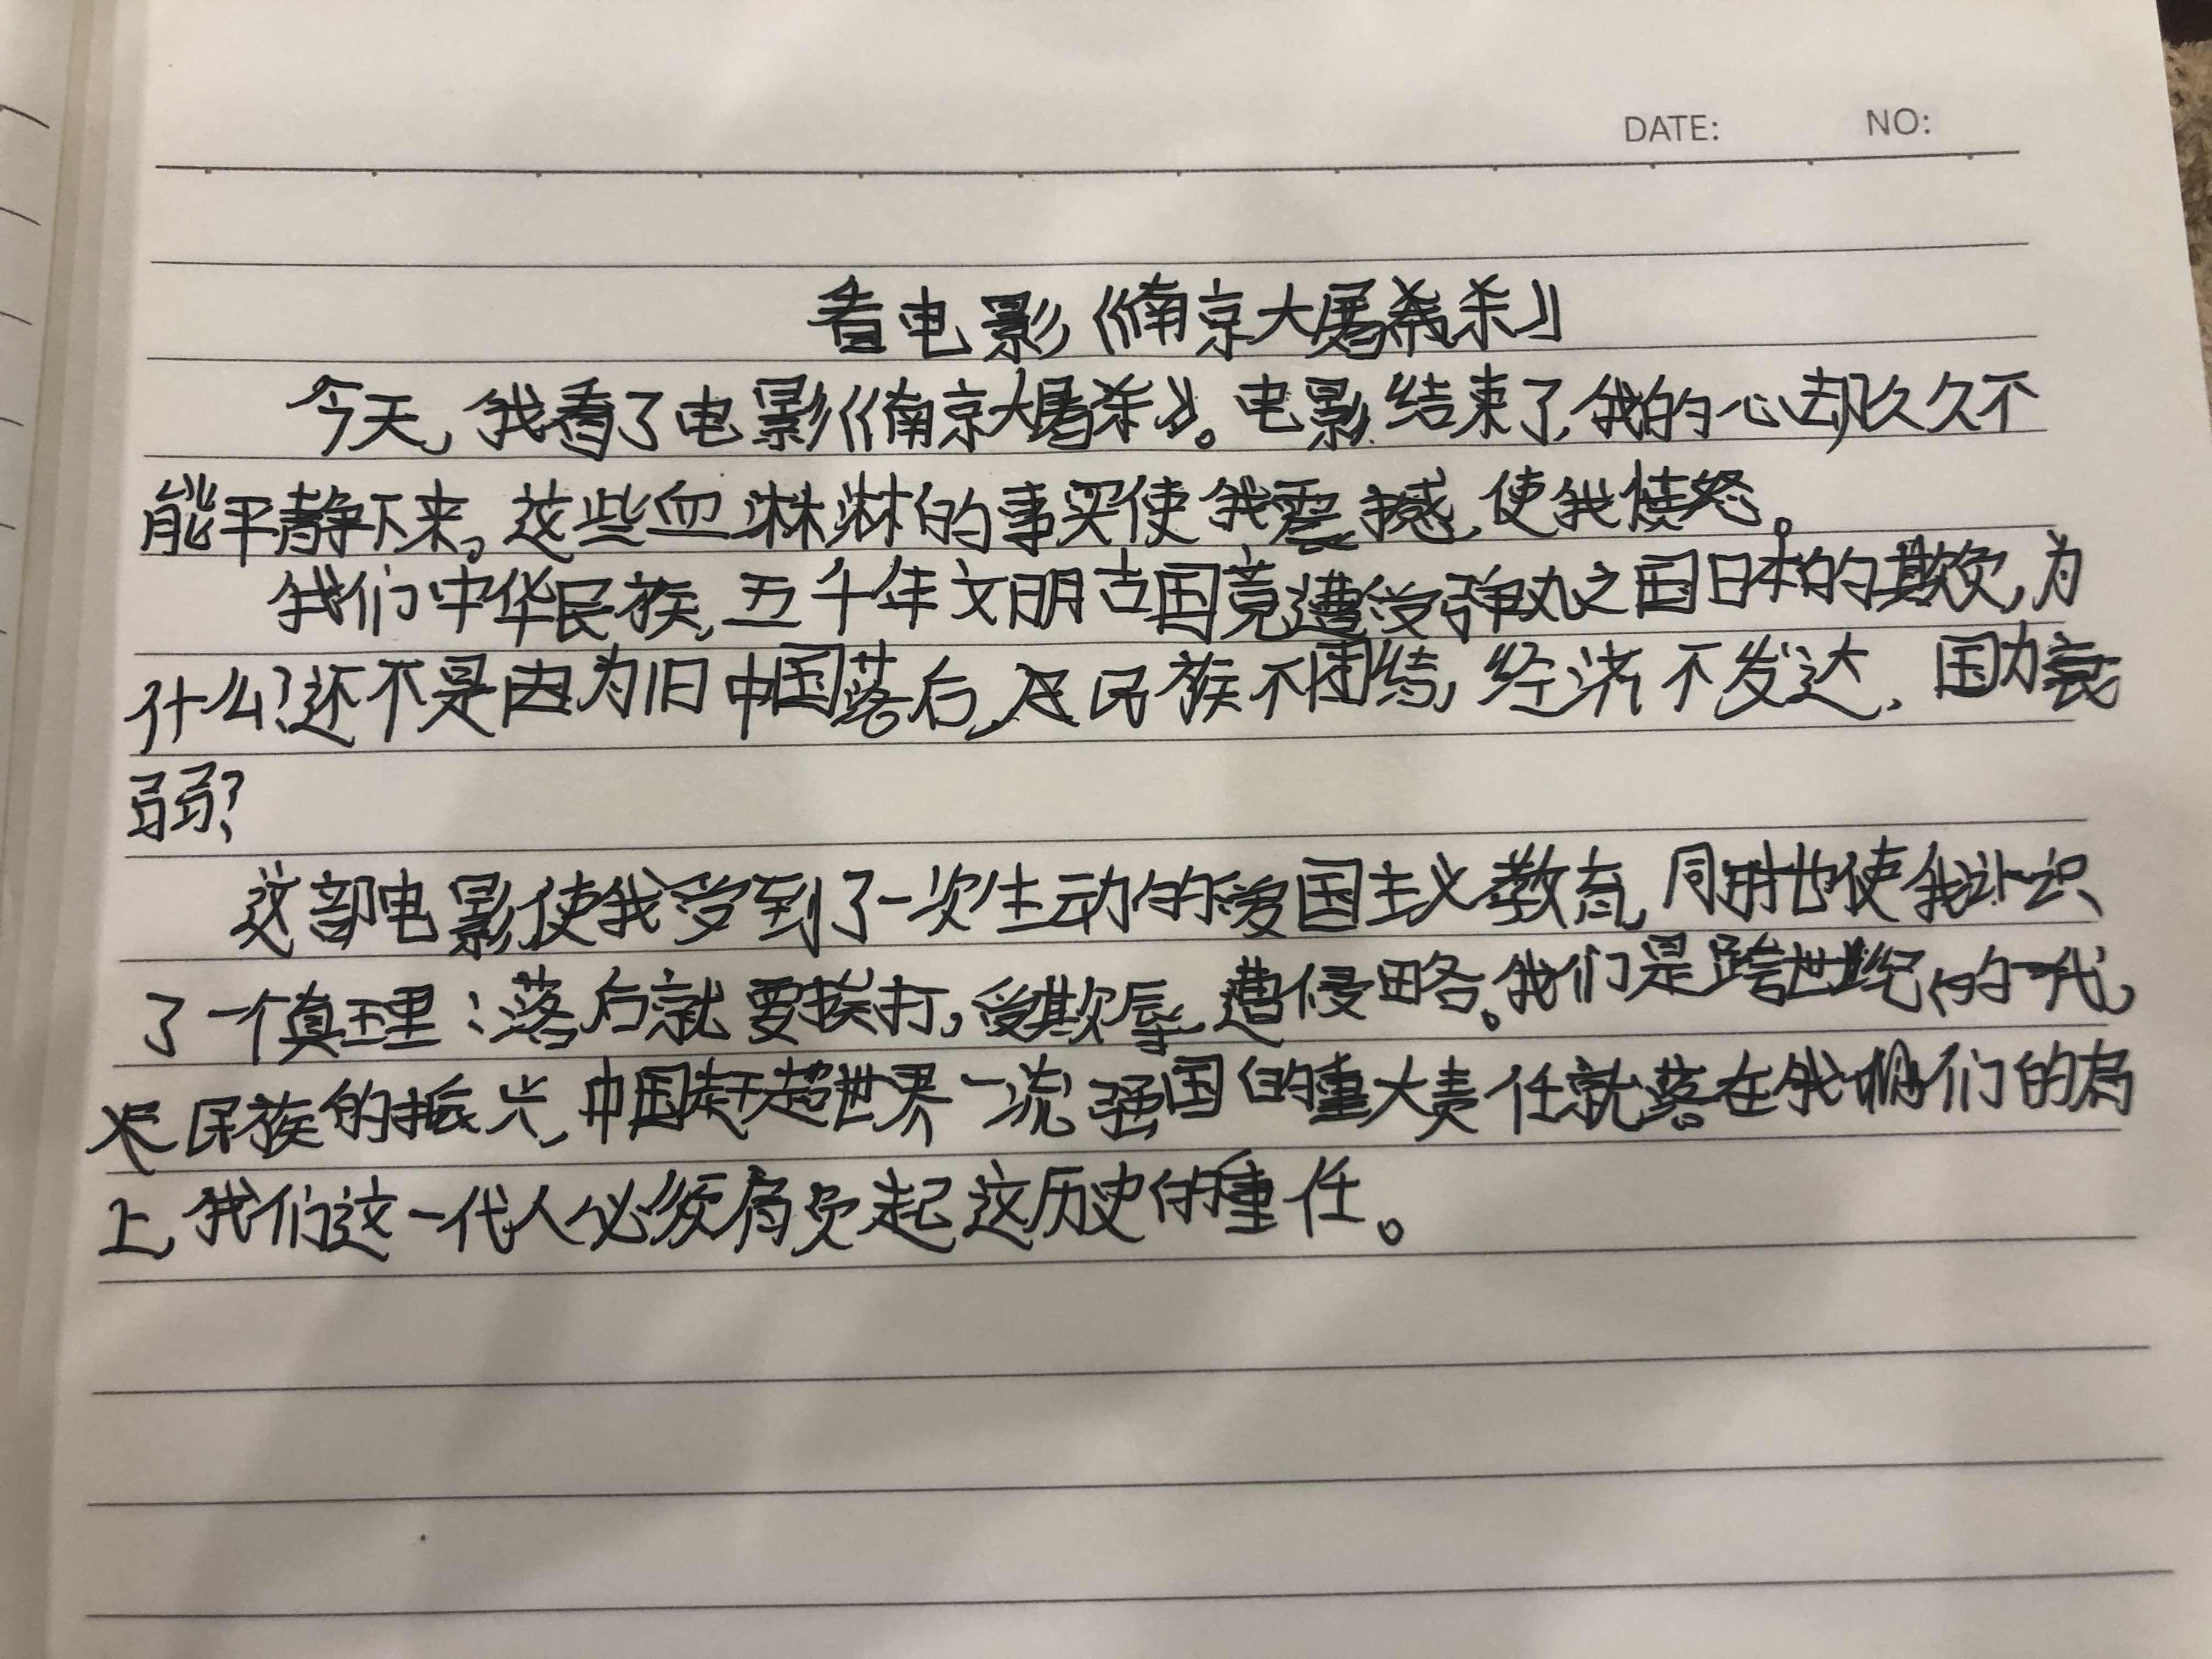 DATE: NO:
看电影《南京大屠杀》
今天,我看了电影《南京大屠杀》。电影结束了,我的心却久久不
能平静下来。这些血淋淋的事实使我震撼,使我愤怒。
我们中华民族,五千年文明古国竟遭受弹丸之国日本的欺负,为
什么?还不是因为旧中国落后,民族不团结,经济不发达,国力衰
弱?
这部电影使我受到了一次生动的爱国主义教育,同时也使我认识
了一个真理:落后就要挨打,受欺辱,遭侵略。我们是跨世纪的一代,
民族的振兴,中国赶超世界一流强国的重大责任就落在我们的肩
上,我们这一代人必须肩负起这历史的重任。